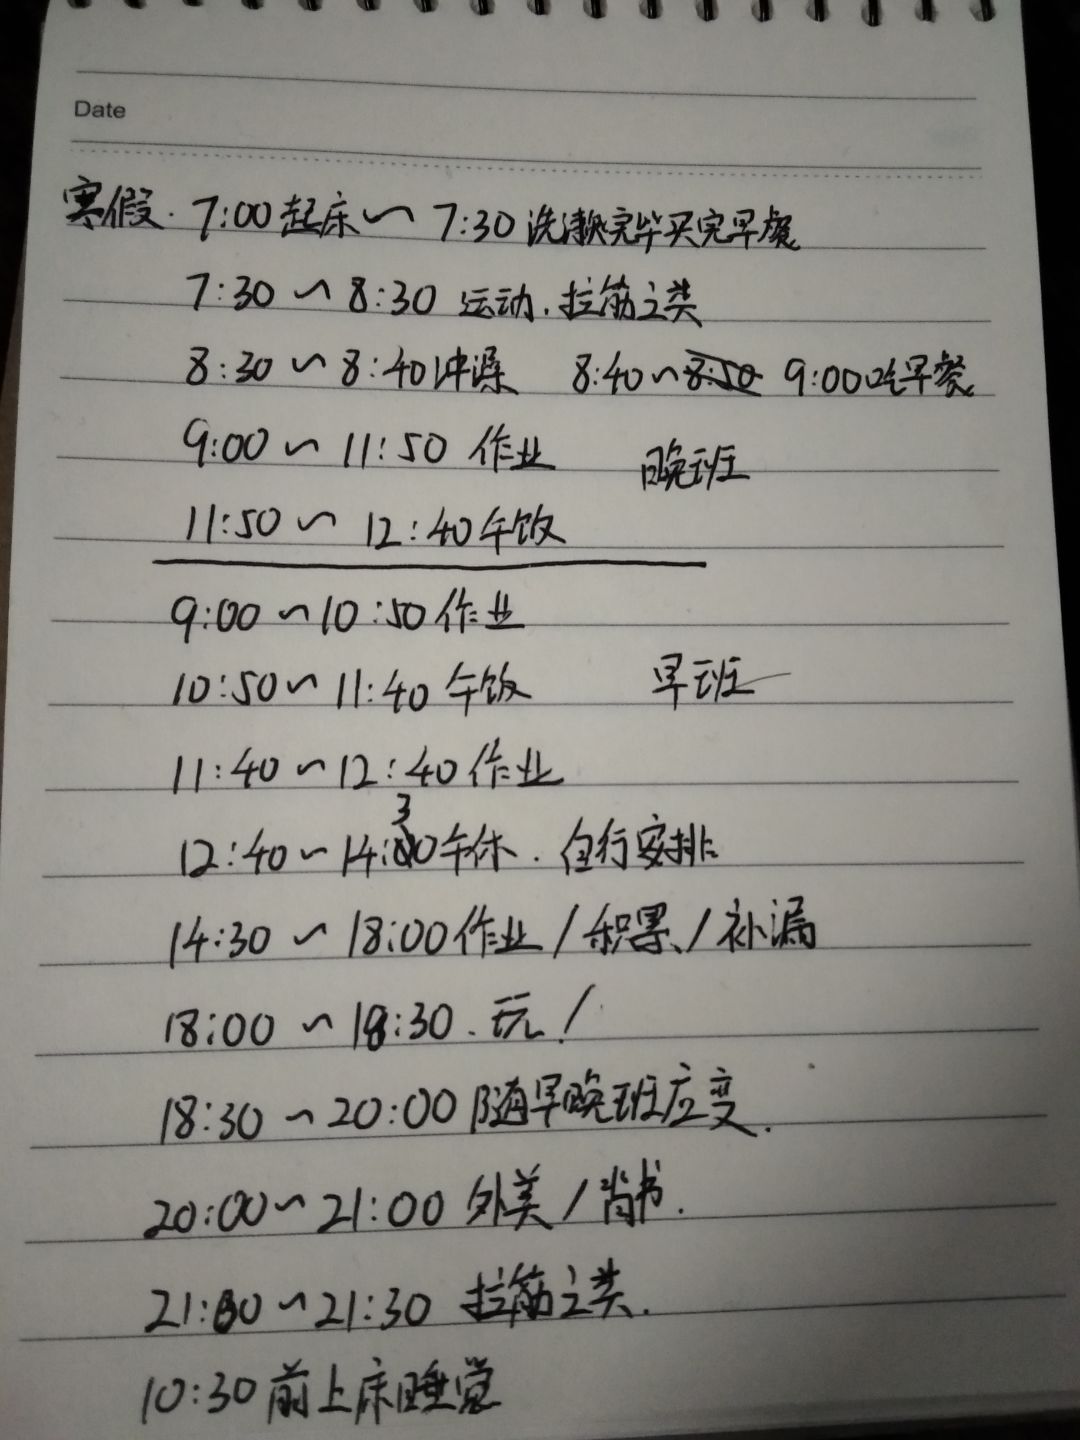 Date
寒假. 7:00起床～ 7:30 洗漱完毕买完早餐
7:30 ～ 8:30 运动.拉筋之类
8:30 ～ 8:40冲澡 8:40～8:50 9:00吃早餐
9:00 ～ 11:50 作业 晚班
11:50 ～ 12:40午饭
9:00 ～10:50 作业
10:50～ 11:40 午饭 早班
11:40 ～12:40 作业
12:40 ～14:30午休. 自行安排
14:30 ～ 18:00作业/积累/补漏
18:00 ～ 18:30.玩!
18:30 ～20:00 随早晚班应变.
20:00～21:00 外美/背书.
21:00～21:30 拉筋之类.
10:30前上床睡觉